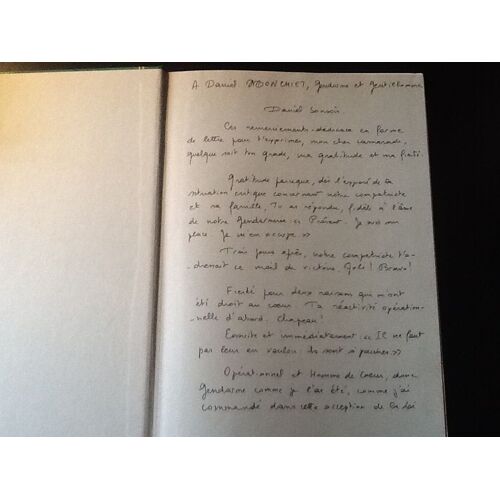 A Daniel MONCHIET, Gendarme et gentilhomme
Daniel bonsoir.
Ces remerciements-dédicace en forme
de lettre pour t'exprimer, mon cher camarade,
quelque soit ton grade, ma gratitude et ma fierté.
Gratitude parceque, dès l'exposé de la
situation critique concernant notre compatriote
et sa famille, Tu as répondu, fidèle à l'âme
de notre Gendarmerie: « Présent. Je suis sur
place. Je m'en occupe »
Trois jours après, notre compatriote t'a-
-dressait ce mail de victoire, Joie! Bravo!
Fierté pour deux raisons qui m'ont
été droit au coeur. Ta réactivité opération-
-nelle d'abord. Chapeau!
Ensuite et immédiatement: « Il ne faut
pas leur en vouloir: ils sont si pauvres »
Opérationnel et Homme de Coeur, donc
Gendarme comme je l'ai été, comme j'ai
commandé dans cette acception de la loi